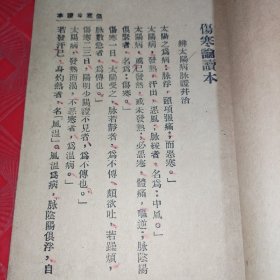 傷寒論讀本
辨太陽病脉證并治
太陽之爲病，脉浮，頭項强痛，而惡寒。
太陽病，發熱，汗出，惡風，脉緩者，名爲「中風。」
太陽病，或已發熱，或未發熱，必惡寒，體痛，嘔逆，脉陰陽
俱緊者，名爲傷寒。
傷寒一日，太陽受之，脉若靜者，爲不傳，頗欲吐，若躁煩，
脉數急者，爲傳也。
傷寒二三日，陽明少陽證不見者，爲不傳也。
太陽病，發熱而渴，不惡寒者，爲溫病。
若發汗已，身灼熱者，名「風溫。」風溫爲病，脉陰陽俱浮，自